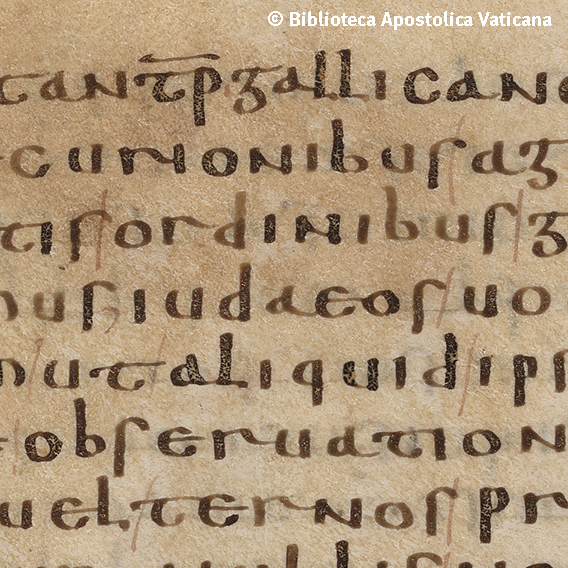 © Biblioteca Apostolica Vaticana
tant p̄ gallicano
curionibus ag
tis ordinibus g
nus iudaeos uo
n ut aliquid ipi
e obseruation
uel ternos pr